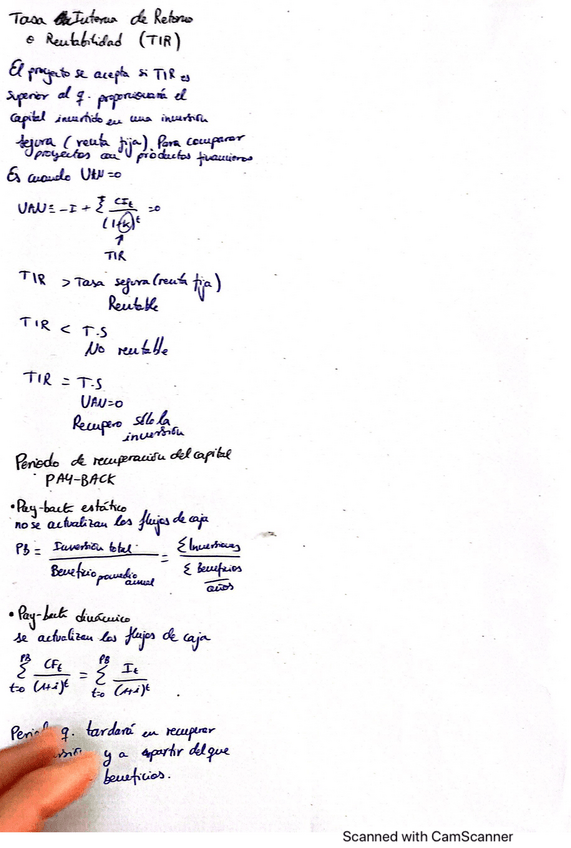 Tasa Interna de Retorno
o Rentabilidad (TIR)
El proyecto se acepta si TIR es
superior al q. proporcionará el
capital invertido en una inversión
segura (renta fija). Para comparar
proyectos con productos financieros
Es cuando VAN=0
VAN = -I + Σ CFt / (1+k)^t = 0
↑
TIR
TIR > Tasa segura (renta fija)
Rentable
TIR < T.S
No rentable
TIR = T.S
VAN=0
Recupero sólo la
inversión
Periodo de recuperación del capital
PAY-BACK
• Pay-back estático
no se actualizan los flujos de caja
PB = Inversión total / Beneficio promedio anual = Σ Inversiones / Σ Beneficios / años
• Pay-back dinámico
se actualizan los flujos de caja
PB Σ t=0 CFt / (1+i)^t = PB Σ t=0 It / (1+i)^t .
q. tardará en recuperar
y a partir del que
beneficios.
Scanned with CamScanner